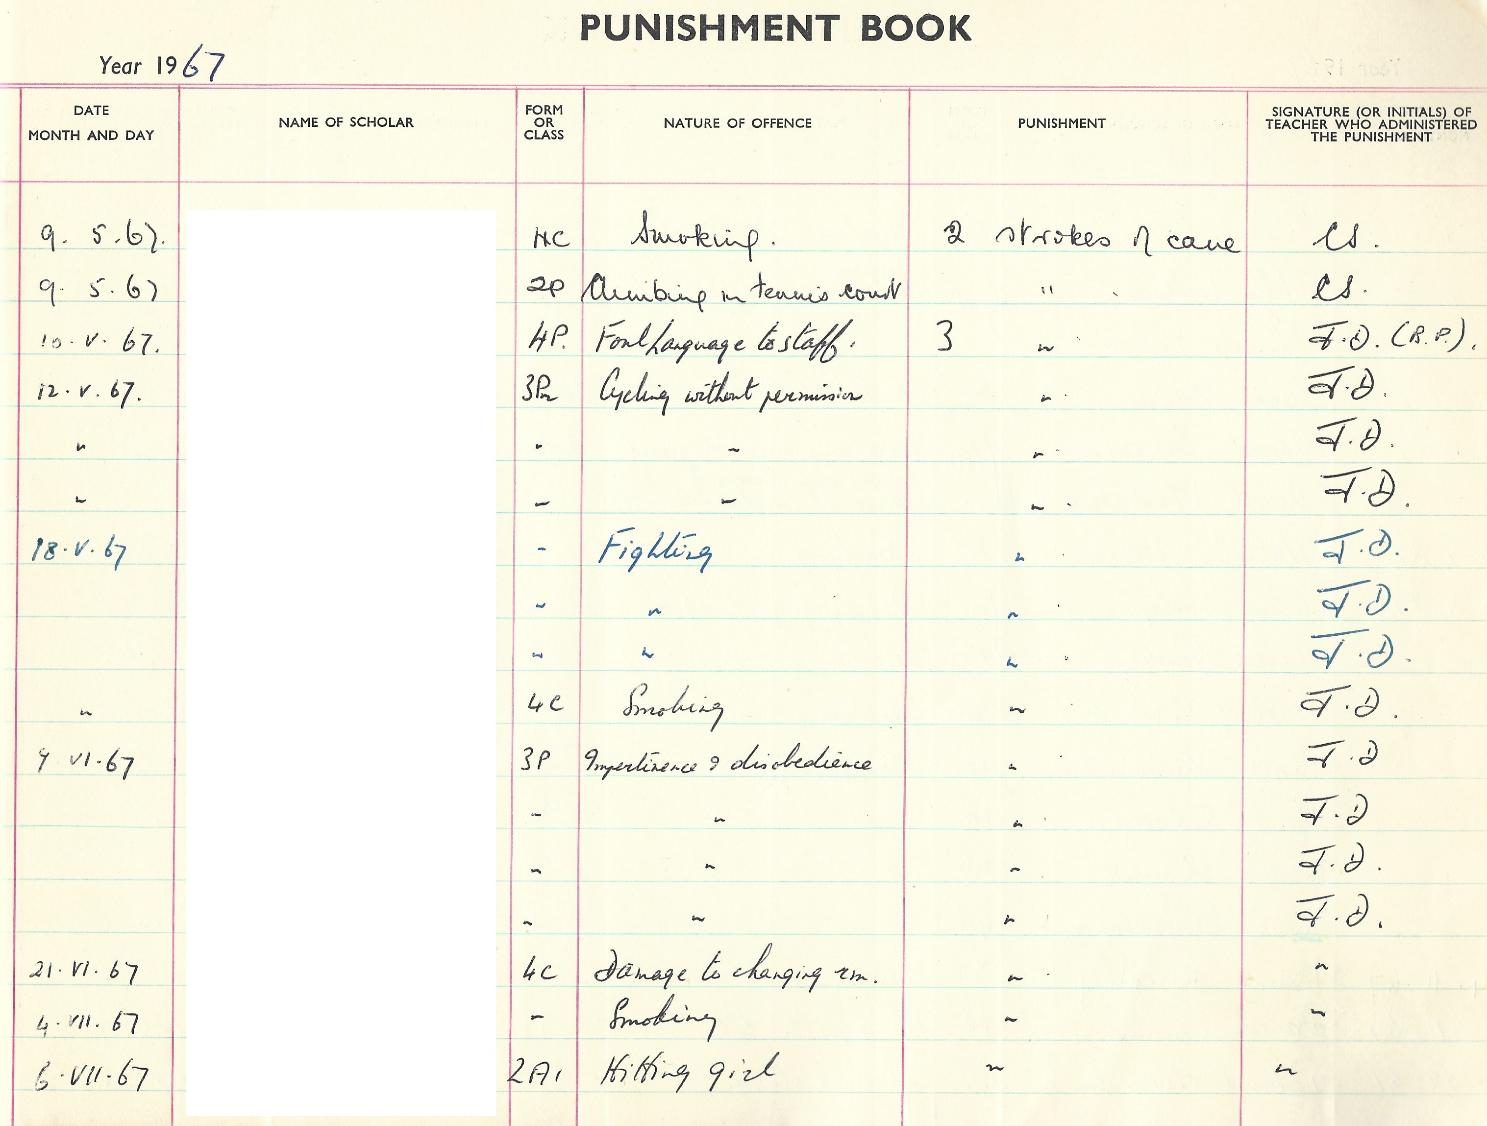 PUNISHMENT BOOK
Year 1967
DATE MONTH AND DAY NAME OF SCHOLAR FORM OR CLASS NATURE OF OFFENCE PUNISHMENT SIGNATURE (OR INITIALS) OF TEACHER WHO ADMINISTERED THE PUNISHMENT
9. 5.67. 4C Smoking. 2 strokes of cane CS.
9. 5.67 2P Climbing in tennis court " CS.
10.V.67. 4P. Foul language to staff. 3 " J.D. (R.P.).
12.V.67. 3P2 Cycling without permission " J.D.
" " " " J.D.
" " " " J.D.
18.V.67 " Fighting " J.D.
" " " J.D.
" " " J.D.
" 4C Smoking " J.D.
9 VI.67 3P Impertinence & disobedience " J.D
" " " J.D
" " " J.D.
" " " J.D.
21.VI.67 4C Damage to changing rm. " "
4.VII.67 " Smoking " "
6.VII.67 2A1 Hitting girl " "